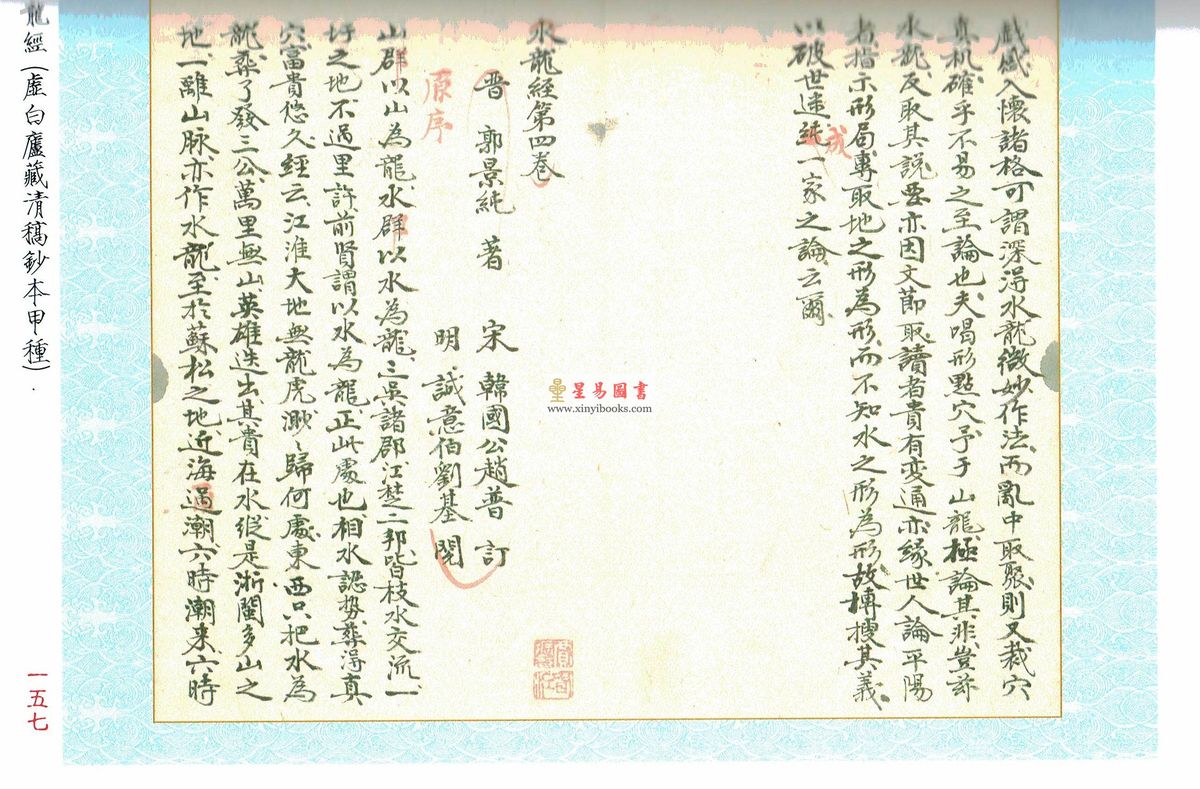 戲感入懷諸格可謂深得水龍微妙作法而亂中取聚則又裁穴
真机確乎不易之至論也夫喝形點穴予于山龍極論其非豈茲
水龍反取其說要亦因文節取讀者貴有变通亦緣世人論平陽
者指示形局專取地之形為形而不知水之形為形故摶搜其義
以破世迷純一家之論云爾
成
水龍經第四巻
晋 郭景純 著 宋 韓國公趙普 訂
明 誠意伯劉基 閱
原序
山群以山為龍水群以水為龍三吳諸郡江楚二邦皆枝水交流一
圩之地不過里許前賢謂以水為龍正此處也相水認势葬得真
穴富貴悠久經云江淮大地無龍虎渺〻歸何處東西只把水為
龍葬了發三公萬里無山英雄迭出其貴在水縱是浙閩多山之
地一離山脉亦作水龍至於蘇松之地近海過潮六時潮来六時
星易圖書
www.xinyibooks.com
龍經(虛白廬藏清稿鈔本甲種)
一五七